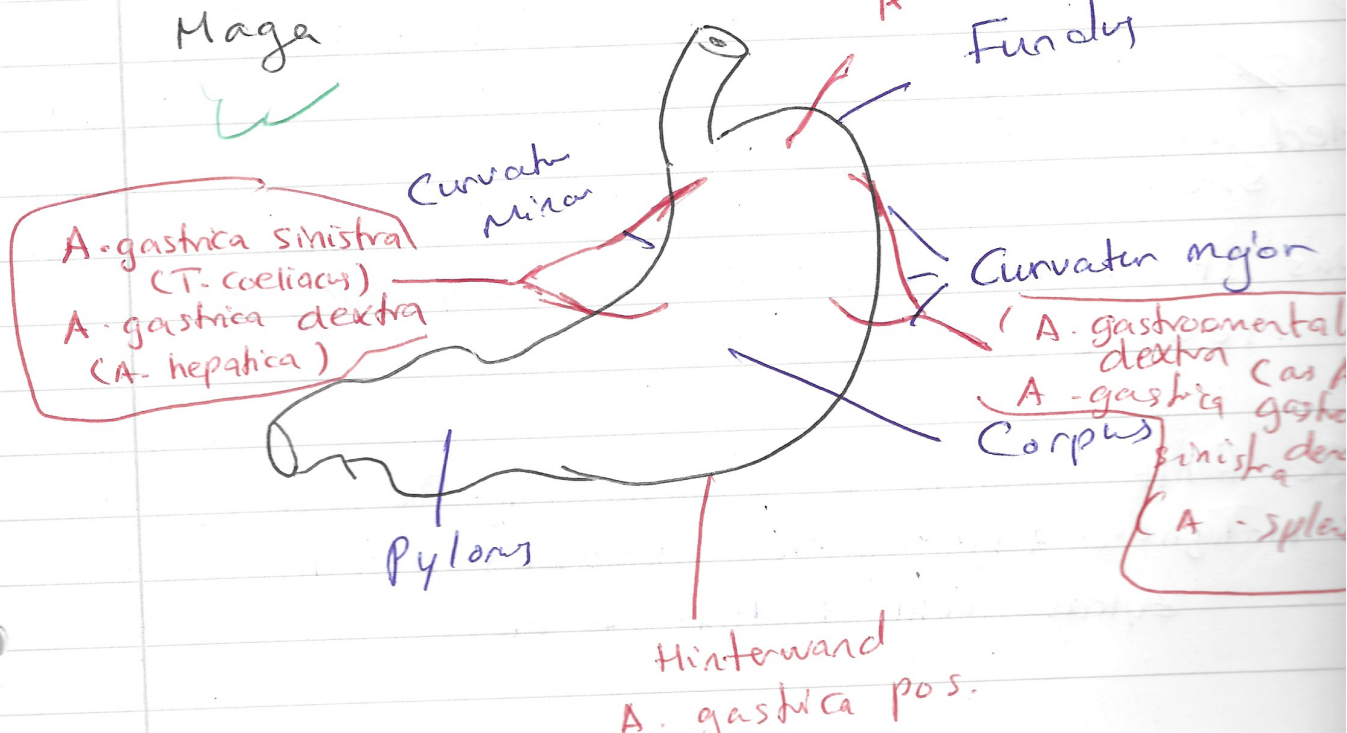 Maga
Fundus
Curvatur
Minor
A. gastrica sinistral
(T. coeliacus)
A. gastrica dextra
(A. hepatica)
Curvatur mjor
(A. gastroomental
dextra (as
A. gastrica
sinistra
(A. splen
Corpus
Pylorus
Hinterwand
A. gastrica pos.